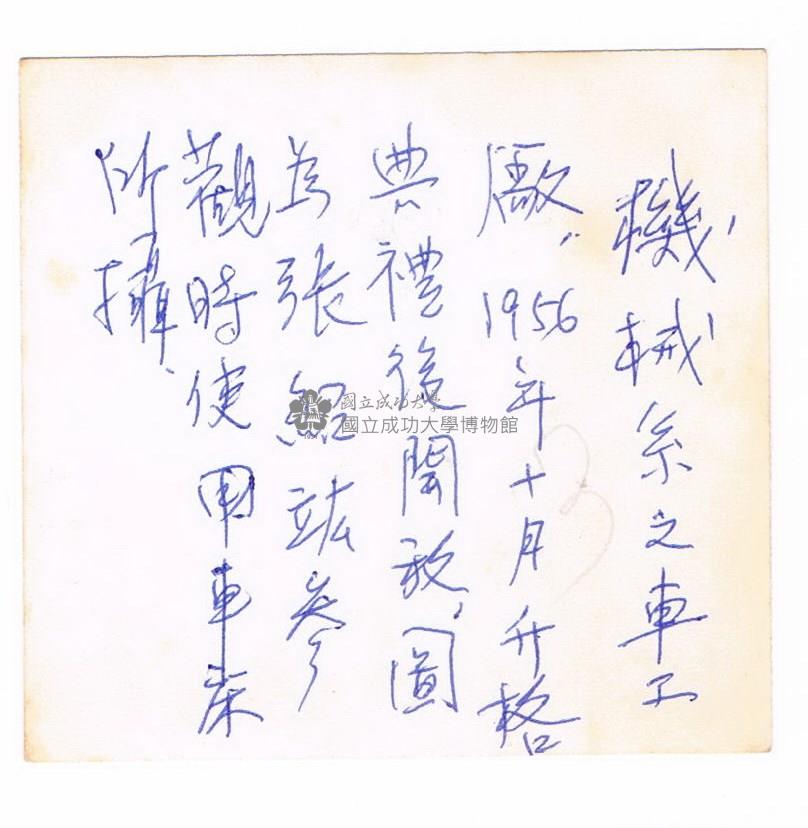 機械系之車工
廠，1956年十月升格
典禮後開放，圖
為張紹竑參
觀時使用車床
所攝
國立成功大學
國立成功大學博物館